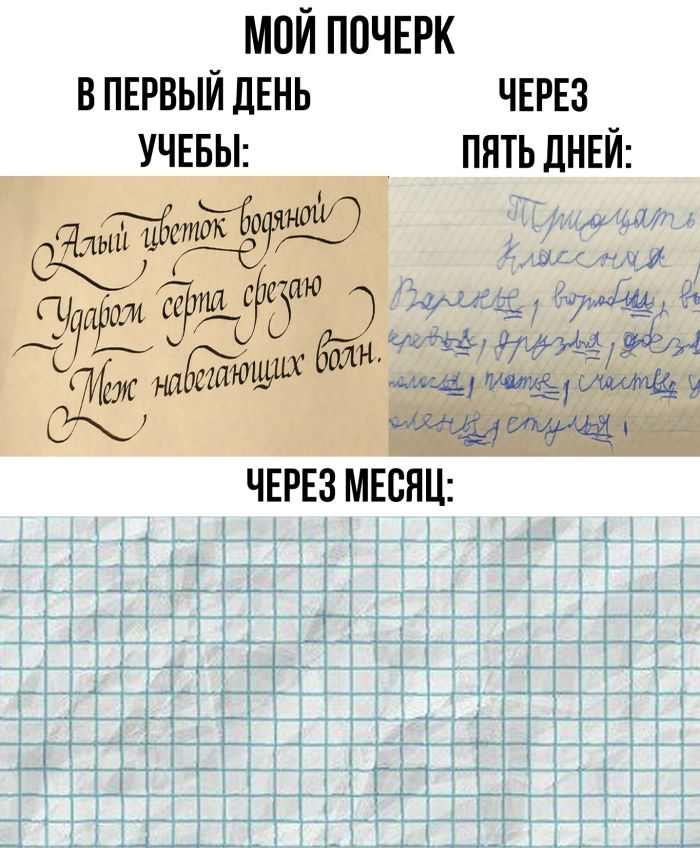 МОЙ ПОЧЕРК
В ПЕРВЫЙ ДЕНЬ
УЧЕБЫ:
Алый цветок водяной
Ударом серпа срезаю
Меж набегающих волн.
ЧЕРЕЗ
ПЯТЬ ДНЕЙ:
Тридцать
Классная
Варенье, воробьи, в
еревья, друзья,
платье, счастье,
стулья,
ЧЕРЕЗ МЕСЯЦ: